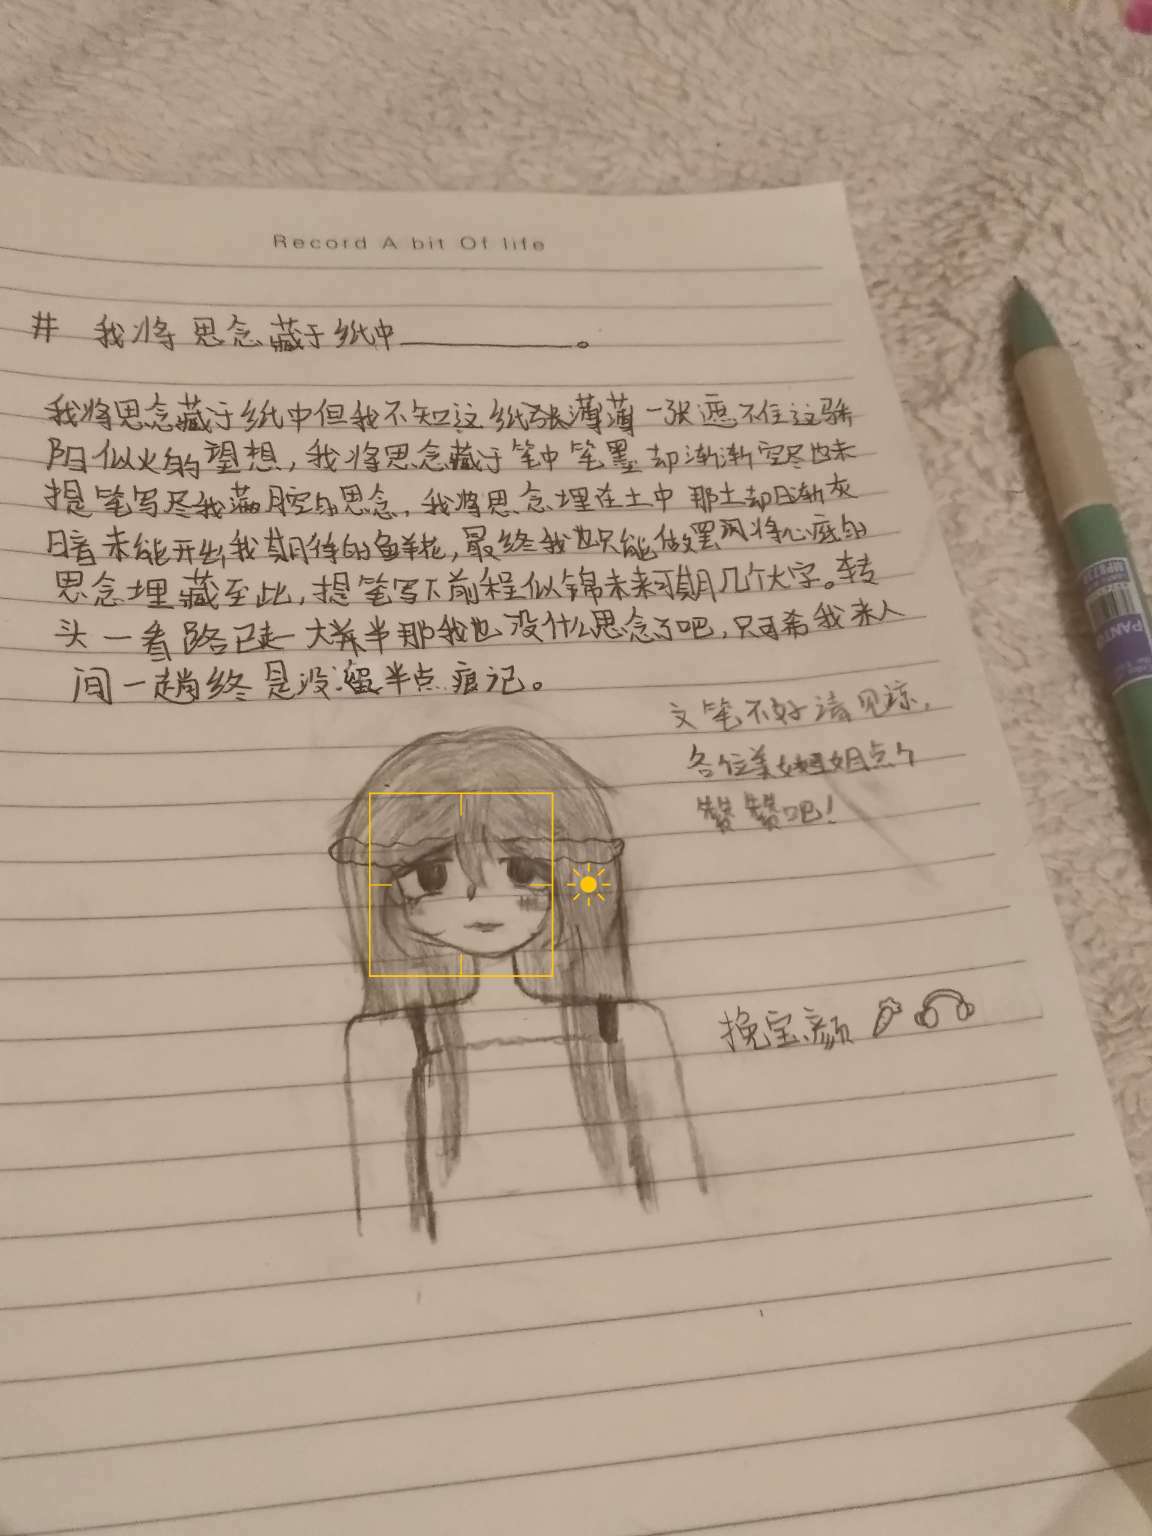 Record A bit Of life
# 我将思念藏于纸中________。
我将思念藏于纸中但我不知这纸张薄薄一张遮不住这骄
阳似火的望想，我将思念藏于笔中笔墨却渐渐空尽也未
提笔写尽我满腔的思念，我将思念埋在土中那土却日渐灰
暗未能开出我期待的鲜花，最终我也只能做罢只将心底的
思念埋藏至此，提笔写下前程似锦未来可期几个大字。转
头一看路已走一大并半那我也没什么思念了吧，只可希我来人
间一趟终是没留半点痕记。
文笔不好请见谅，
各位美女姐姐点个
赞赞吧！
挽宝颜
PANTO